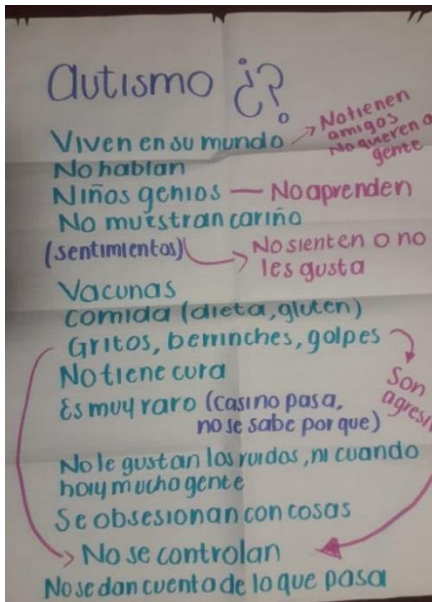 autismo ¿?
Viven en su mundo → No tienen amigos No quieren a gente
No hablan
Niños genios — No aprenden
No muestran cariño
(sentimientos) → No sienten o no les gusta
Vacunas
comida (dieta, gluten)
Gritos, berrinches, golpes
Son
No tiene cura
Es muy raro (casi no pasa,
no se sabe por que)
No le gustan los ruidos, ni cuando
hay mucha gente
Se obsesionan con cosas
No se controlan
No se dan cuenta de lo que pasa